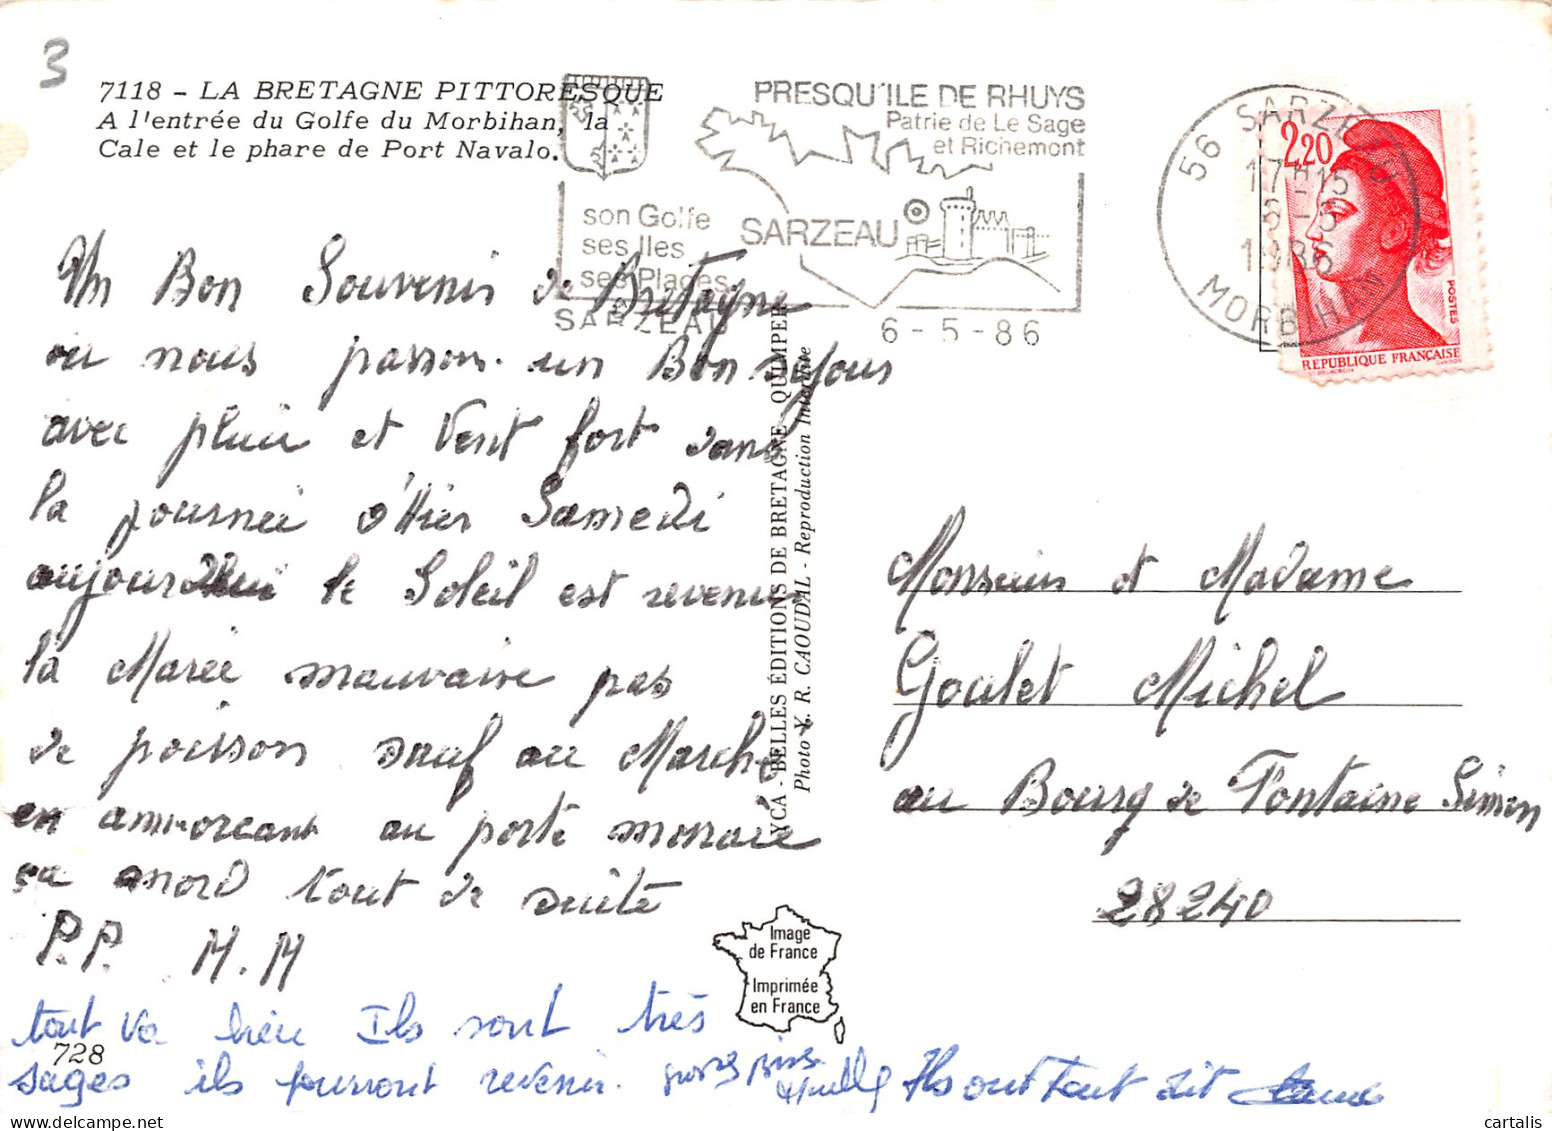 3
7118 - LA BRETAGNE PITTORESQUE
A l'entrée du Golfe du Morbihan, la
Cale et le phare de Port Navalo.
PRESQU'ILE DE RHUYS
Patrie de Le Sage
et Richemont
son Golfe
ses Iles
ses Plages
SARZEAU
SARZEAU
6-5-86
56 SARZEAU
17H15
6-5
1986
MORBIHAN
2,20
POSTES
REPUBLIQUE FRANÇAISE
Un Bon Souvenir de Bretagne
ou nous passons un Bon séjour
avec pluie et Vent fort dans
la journée d'Hier Samedi
aujourd'hui le Soleil est revenu
la Marée mauvaise pas
de poisson sauf au Marché
en amorcant au porte monaie
ça mord tout de suite
P.P. M.M
tout va bien Ils sont très
sages ils pourront revenir. gros bises
Ils ont tout dit
728
YCA - BELLES ÉDITIONS DE BRETAGNE - QUIMPER
Photo Y. R. CAOUDAL - Reproduction Interdite
Image
de France
Imprimée
en France
Monsieur et Madame
Goulet Michel
au Bourg de Fontaine Simon
28240
cartalis